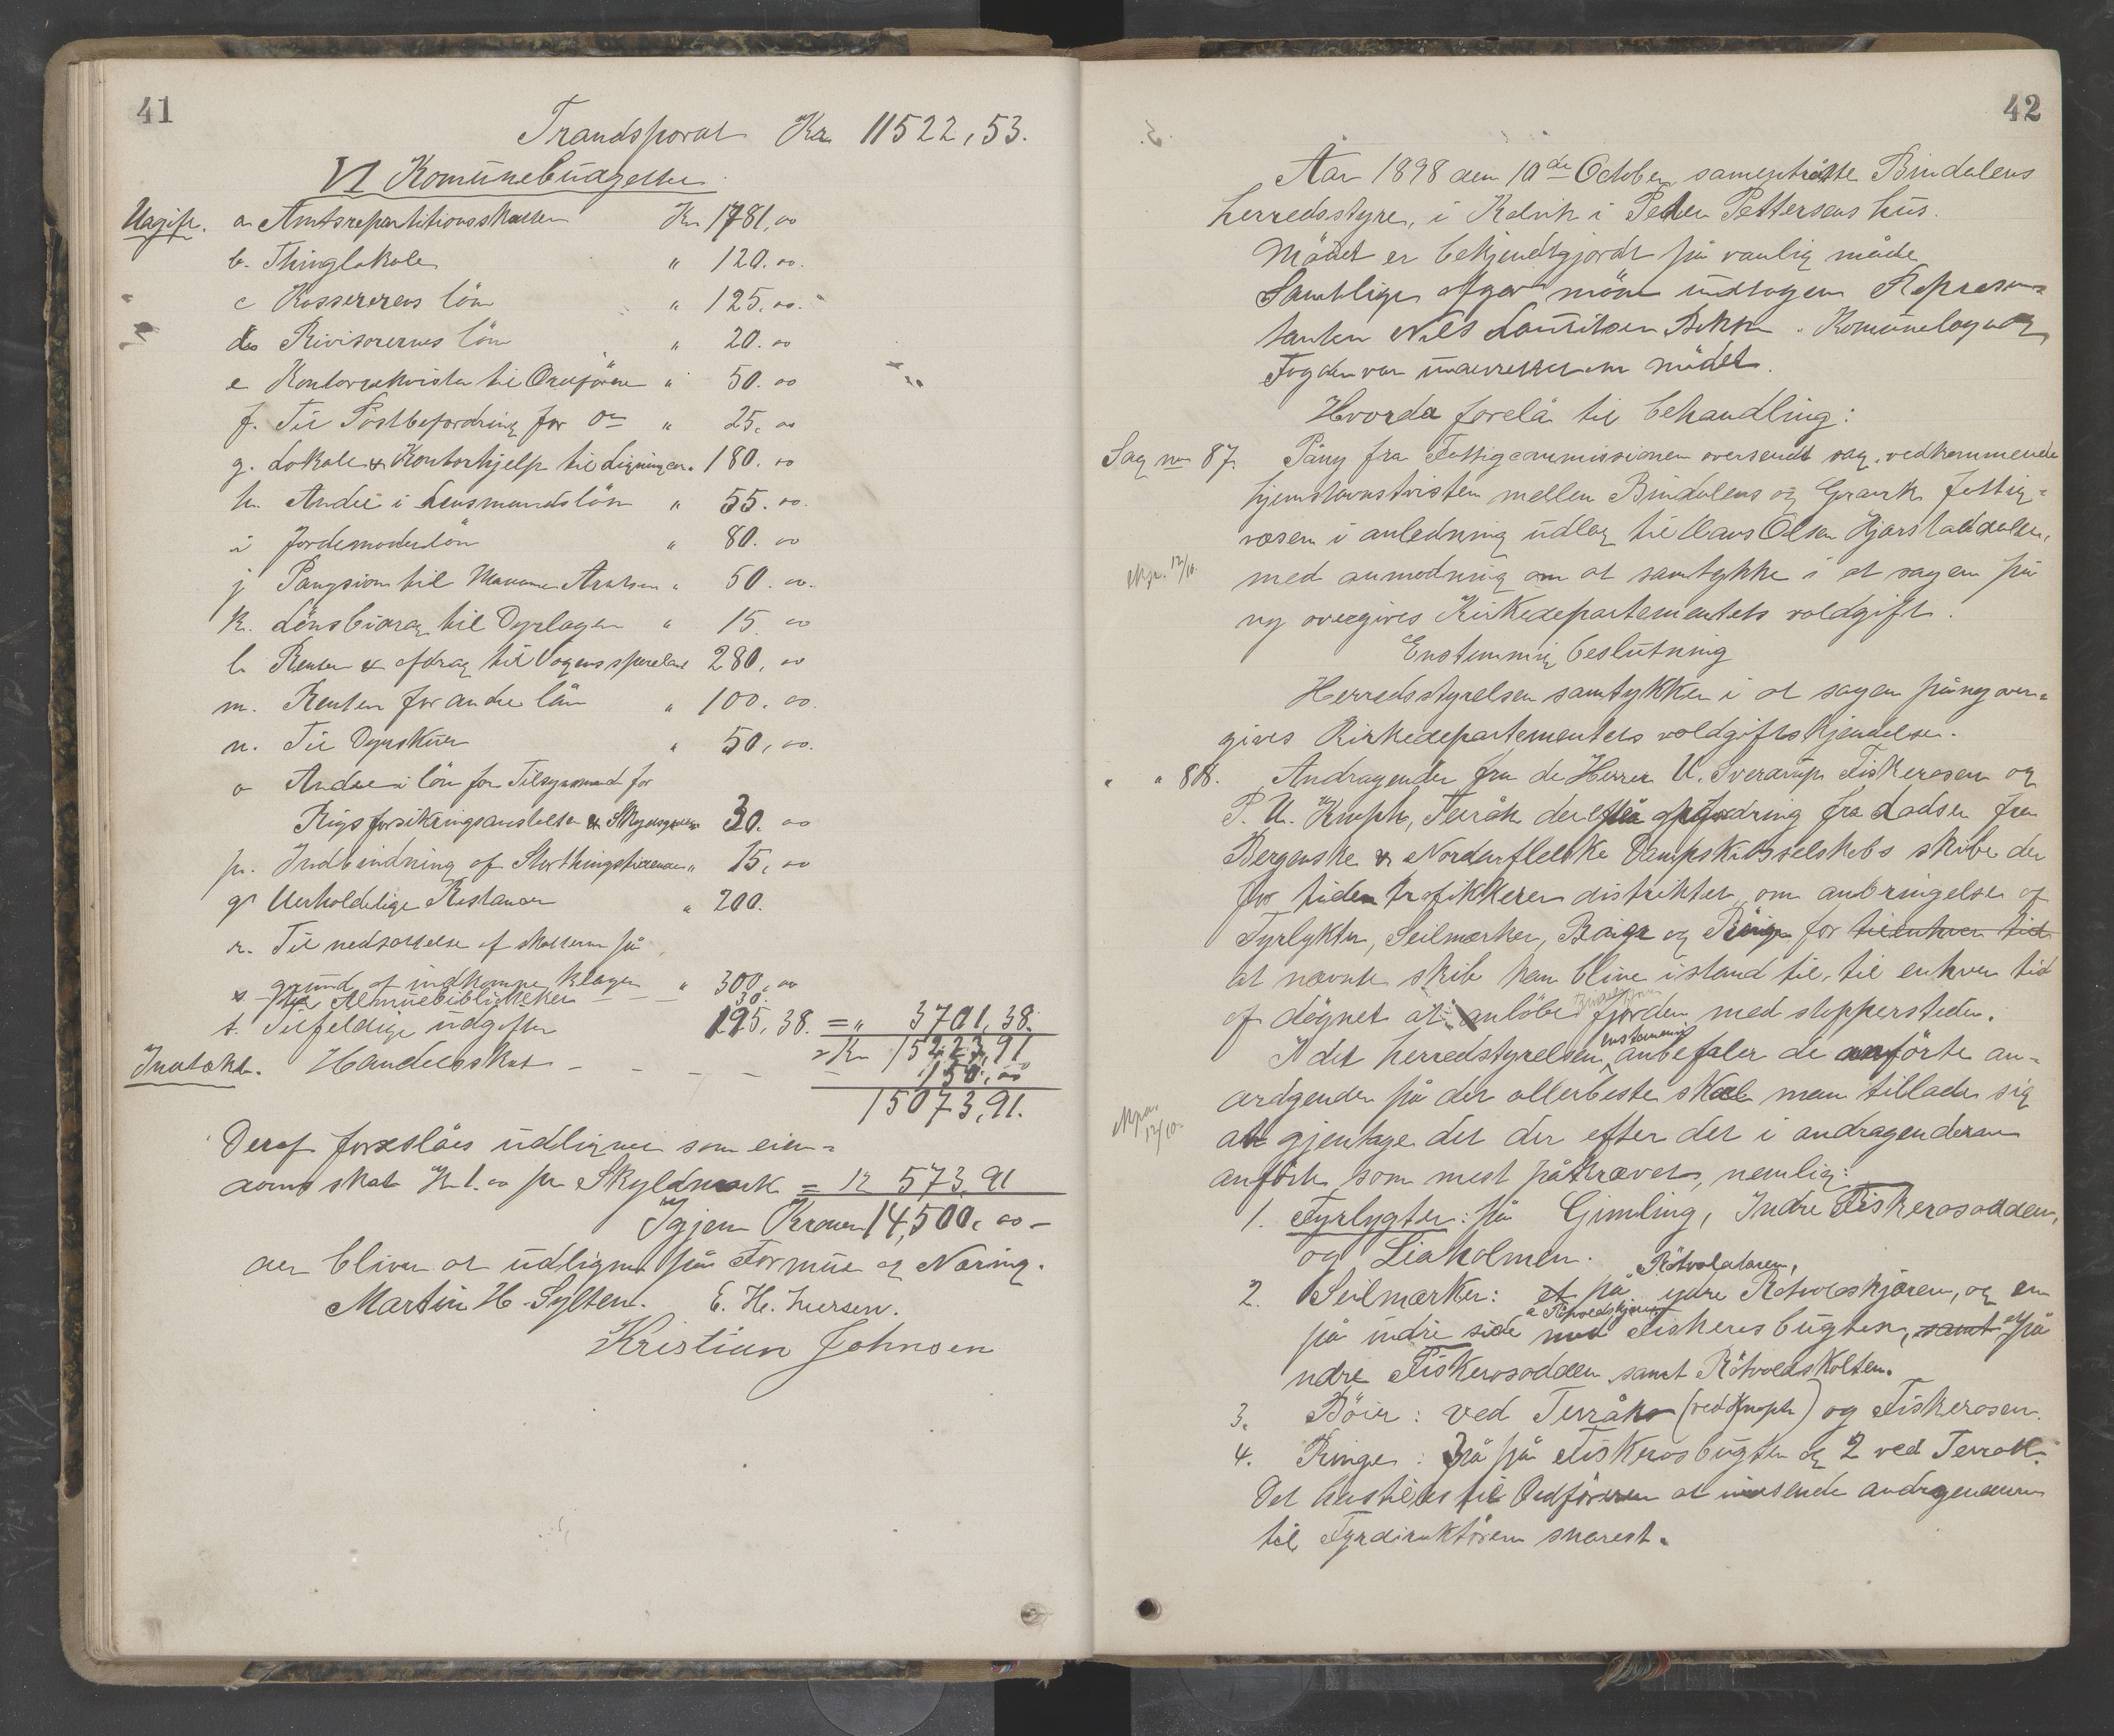 41
Trandsporat Kr 11522,53.
VI Komunebudgettet
Udgift. a Amtsrepartitionsskatten Kr 1781,00
b. Thinglokale " 120.00.
c Kassererens lön " 125.00.
d Rivisorernes lön " 20.00
e Kontorrekvisita til Ordförer " 50.00
f. Til Postbefordring for Do " 25,00
g. Lokale & Kontorhjelp til Ligningen. 180.00
h. Andel i Lensmandslön " 55.00.
i Jordemoderlön " 80.00
j Pangsion til Madame " 50.00.
k. Lönsbidrag til Dyrlægen " 15 00
l. Renter & afdrag til 280,00
m. Renter for andre lån " 100.00.
n. Til Dyrskuer " 50,00.
o Andel i lön for Tilsynsmand for
Rigsforsikringsanstalten & 30.00
p. Indbinding af Storthingstidende " 15,00
q Uerholdelige Restancer " 200.
r. Til nedsættelse af skatterne på
grund af indkomne klager " 300,00
s Til Almuebiblioteker 30.
t. Tilfeldige udgifter 195,38. = " 3701,38.
Kr 15223,91
Indtækt. Handelsskat - - - - 150,00
15073,91.
Deraf foreslåes udlignet som eien=
doms skat Kr 1.00 pr Skyldmark = 573,91
Igjen Kroner 14,500,00 -
der bliver at udligne på Formue og Næring.
Martin H. Sylten. E. H. Iversen.
Kristian Johnsen
42
Aar 1898 den 10de October samentrådte Bindalens
herredsstyre, i Kalvik i Peder Pettersens hus.
Mödet er bekjendtgjordt på vanlig måde
Samtlige mödte undtagen Represen=
tanten Nils Lauritsen . Komunelægen og
Fogden var underrettet om mödet.
Hvorda forelå til behandling:
Sag no 87. Påny fra Fattigcommissionen oversendt sag vedkommende
hjemstavnstvisten mellem Bindalens og Grank fattig=
væsen i anledning udlæg til Hans Olsen
exp. 12/10. med anmodning om at samtykke i at sagen på
ny overgives Kirkedepartementets voldgift.
Enstemmig beslutning
Herredsstyrelsen samtykker i at sagen påny over=
gives Kirkedepartementets voldgiftskjendelse.
" " 88. Andragender fra de Herrer U. Sverdrup Fiskerosen og
P. U. Knoph, Terråk der efter opfordring fra Lodser fra
Bergenske & Nordenfjelske Dampskibsselskabs skibe der
for tiden trafikkerer distriktet, om anbringelse af
Fyrlykter, Seilmærker, Böier og Ringe for tilenhver tid
at nævnte skibe kan blive istand til, til enhver tid
af dögnet at anlöbe fjorden med stoppersteder.
I det herredstyrelsen enstemmig anbefaler de anförte an=
dragender på det allerbeste skal man tillade sig
12/10. at gjentage det der efter det i andragenderne
anförte som mest påkrævet, nemlig:
1. Fyrlygter: på Gimling, Indre Fiskerosodden,
og Liaholmen.
2. Seilmærker: et på Rötvoldtaren, ydre Rötvoldskjæren, og en
på indre side Rötvoldskjæren mod Fiskeresbugten, samt et på
ndre Fiskerosodden samt Rötvoldskolten.
3. Böier: ved Terråk (ved Knoph) og Fiskerosen.
4. Ringe: på Fiskerosbugten og 2 ved Terråk.
Det henstilles til Ordföreren at indsende andragenderne
til Fyrdirektören snarest.